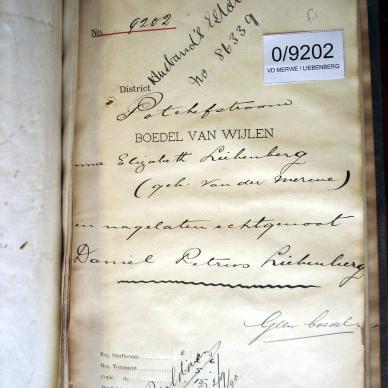 No. 9202
Husband's Estate
No 86339
f.1
0/9202
VD MERWE / LIEBENBERG
District
Potchefstroom
BOEDEL VAN WIJLEN
Elizabeth Liebenberg
(geb: van der Merwe)
en nagelaten echtgenoot
Daniel Petrus Liebenberg
Geen boedel
Reg. Sterfkennis
Reg. Testament